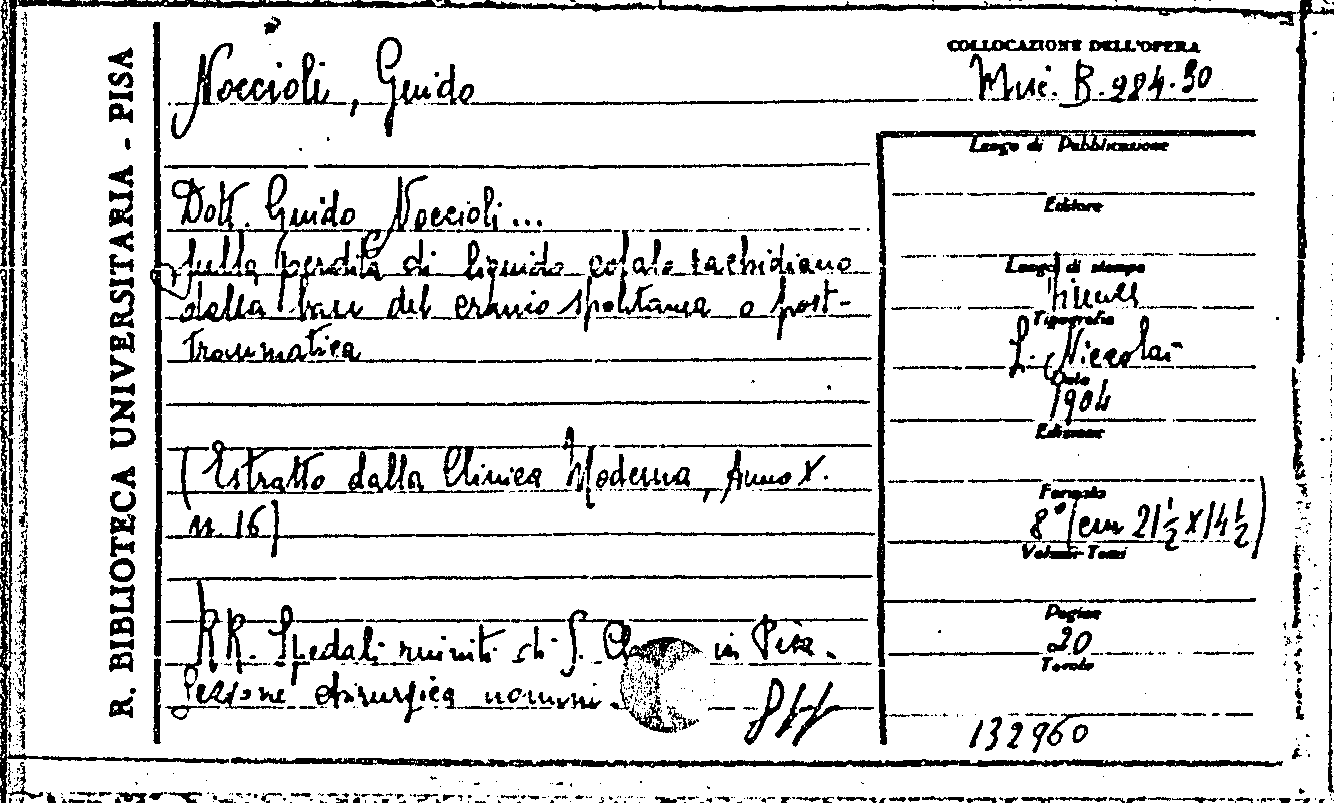 R. BIBLIOTECA UNIVERSITARIA - PISA
Noccioli, Guido
COLLOCAZIONE DELL'OPERA
Misc. B. 984.30
Dott. Guido Noccioli...
Sulla perdita di liquido cefalo rachidiano
dalla base del cranio spontanea o post-
traumatica
(Estratto dalla Clinica Moderna, Anno X.
n. 16)
RR. Spedali riuniti di S. in Pisa.
Sezione chirurgica uomini.
Luogo di Pubblicazione
Editore
Luogo di stampa
Firenze
Tipografia
L. Niccolai
Data
1904
Edizione
Formato
8° (cm 21½ x 14½)
Volumi-Tomi
Pagine
20
Tavole
132960